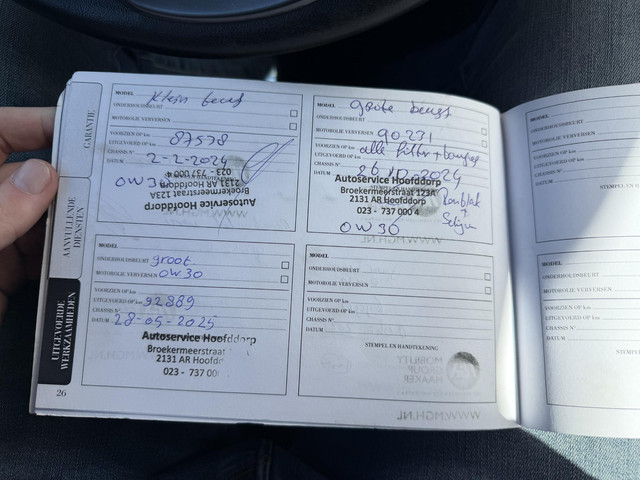 GARANTIE
AANVULLENDE
DIENSTEN
UITGEVOERDE
WERKZAAMHEDEN
26
MODEL Klein beurt
ONDERHOUDSBEURT
MOTOROLIE VERVERSEN
VOORZIEN OP km
UITGEVOERD OP km 87578
CHASSIS N°
DATUM 2-2-2024
OW30
Autoservice Hoofddorp
Broekermeerstraat 123A
2131 AR Hoofddorp
023 - 737 000 4
MODEL grote beurt
ONDERHOUDSBEURT
MOTOROLIE VERVERSEN
VOORZIEN OP km 90.271
UITGEVOERD OP km alle filters
CHASSIS N°
DATUM 26 2024
Autoservice Hoofddorp
Broekermeerstraat 123A
2131 AR Hoofddorp
023 - 737 000 4
OW30
WWW.MGH.NL
MODEL
ONDERHOUDSBEURT groot
MOTOROLIE VERVERSEN OW30
VOORZIEN OP km
UITGEVOERD OP km 92889
CHASSIS N°
DATUM 28-05-2025
Autoservice Hoofddorp
Broekermeerstraat
2131 AR Hoofddo
023 - 737 00
MODEL
ONDERHOUDSBEURT
MOTOROLIE VERVERSEN
VOORZIEN OP km
UITGEVOERD OP km
CHASSIS N°
DATUM
STEMPEL EN HANDTEKENING
MOBILITY
GROUP
HAAKER
WWW.MGH.NL
MODEL
ONDERHOUDSBEURT
MOTOROLIE VERVERSEN
VOORZIEN OP km
UITGEVOERD OP km
CHASSIS N°
DATUM
STEMPEL EN H
MODEL
ONDERHOUDSBEURT
MOTOROLIE VERVERSEN
VOORZIEN OP km
UITGEVOERD OP km
CHASSIS N°
DATUM